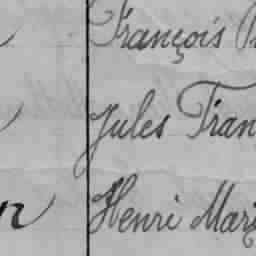 François
Jules Fran
Henri Mari